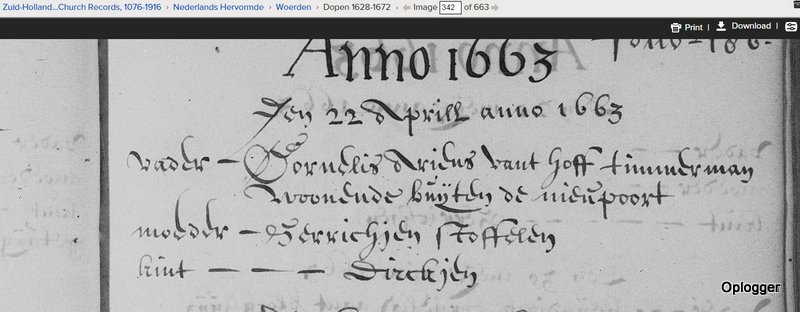 Zuid-Holland...Church Records, 1076-1916 › Nederlands Hervormde › Woerden › Dopen 1628-1672 › Image 342 of 663
Print | Download |
Anno 1663
Den 22 Aprill anno 1663
vader – Cornelis Ariens vant hoff timmerman
woonende buÿten de nieupoort
moeder – Gerrichjen stoffelen
kint – – – Dirckjen
Oplogger